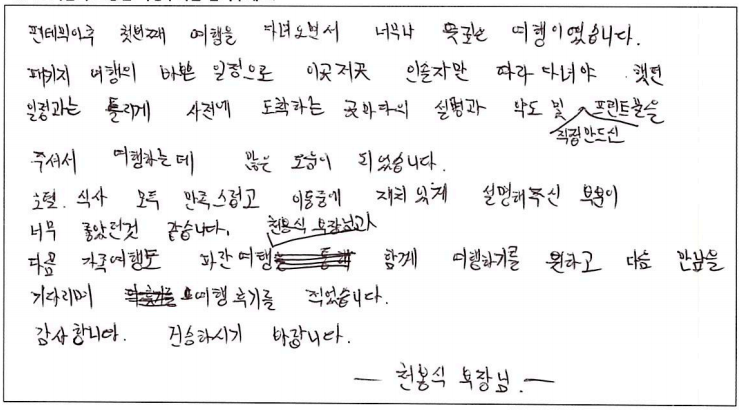 컨테믜아주 첫번째 여행을 다녀오면서 너무나 뜻깊은 여행이였습니다.
패키지 여행의 바쁜 일정으로 이곳저곳 인솔자만 따라 다녀야 했던
일정과는 틀리게 사전에 도착하는 곳마다의 설명과 약도 및 직접만드신 프린트물을
주셔서 여행하는데 많은 도움이 되었습니다.
호텔. 식사 모두 만족스럽고 이동중에 재치있게 설명해주신 부분이
너무 좋았던것 같습니다.
다음 가족여행도 파란여행 천봉식 부장님과 함께 여행하기를 원하고 다음 만남을
기다리며 여행후기를 적었습니다.
감사합니다. 건승하시기 바랍니다.
— 천봉식 부장님. —